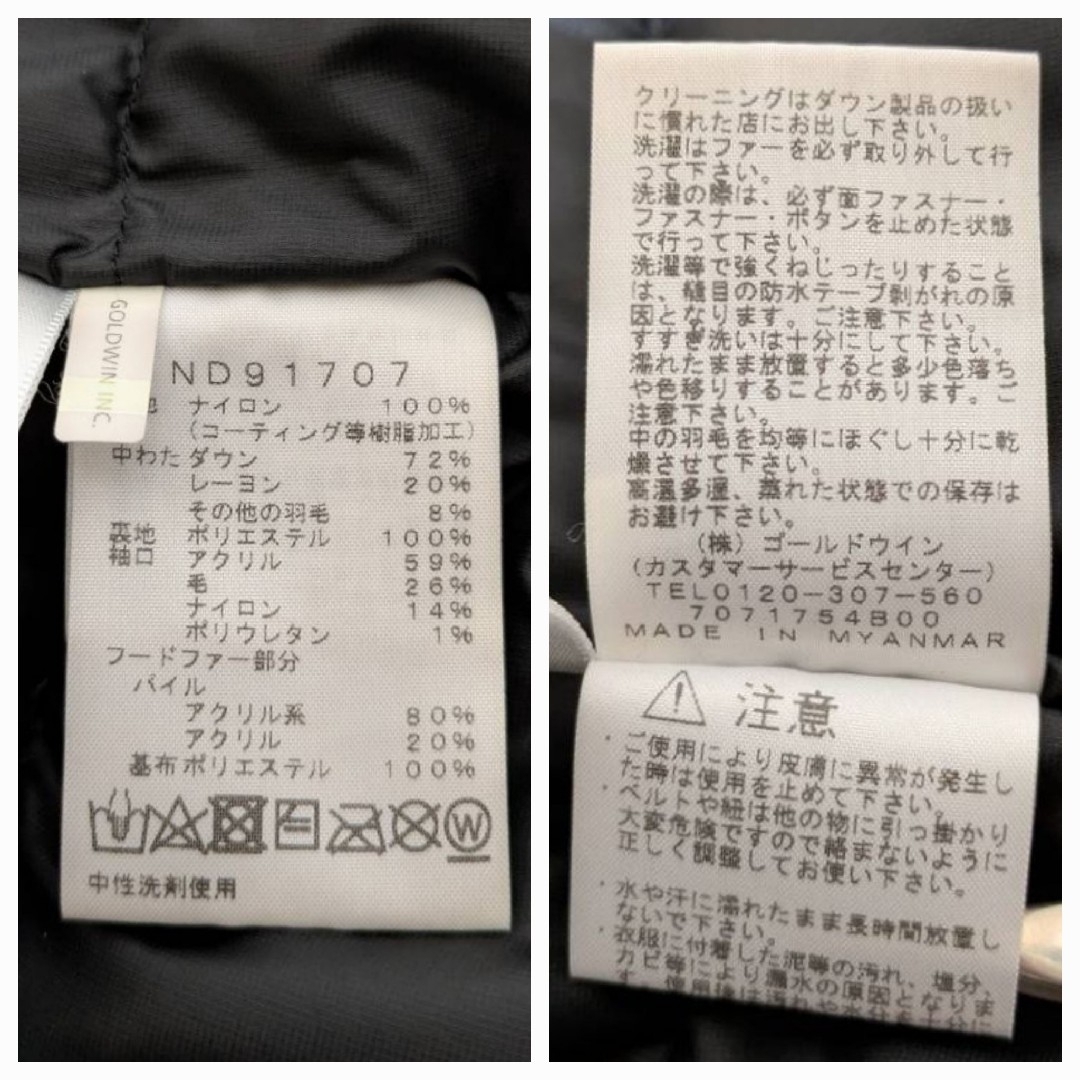 GOLDWIN INC.
ND91707
地 ナイロン 100%
(コーティング等樹脂加工)
中わた ダウン 72%
レーヨン 20%
その他の羽毛 8%
裏地 ポリエステル 100%
袖口 アクリル 59%
毛 26%
ナイロン 14%
ポリウレタン 1%
フードファー部分
パイル
アクリル系 80%
アクリル 20%
基布 ポリエステル 100%
W
中性洗剤使用
クリーニングはダウン製品の扱い
に慣れた店にお出し下さい。
洗濯はファーを必ず取り外して行
って下さい。
洗濯の際は、必ず面ファスナー・
ファスナー・ボタンを止めた状態
で行って下さい。
洗濯等で強くねじったりすること
は、縫目の防水テープ剝がれの原
因となります。ご注意下さい。
すすぎ洗いは十分にして下さい。
濡れたまま放置すると多少色落ち
や色移りすることがあります。ご
注意下さい。
中の羽毛を均等にほぐし十分に乾
燥させて下さい。
高温多湿、蒸れた状態での保存は
お避け下さい。
(株)ゴールドウイン
(カスタマーサービスセンター)
TEL0120-307-560
7071754B00
MADE IN MYANMAR
注意
・ご使用により皮膚に異常が発生し
た時は使用を止めて下さい。
・ベルトや紐は他の物に引っ掛かり
大変危険ですので絡まないように
正しく調整してお使い下さい。
・水や汗に濡れたまま長時間放置し
ないで下さい。
・衣服に付着した泥等の汚れ、塩分、
カビ等により漏水の原因となりま
す。使用後は汚れや水分を十分に